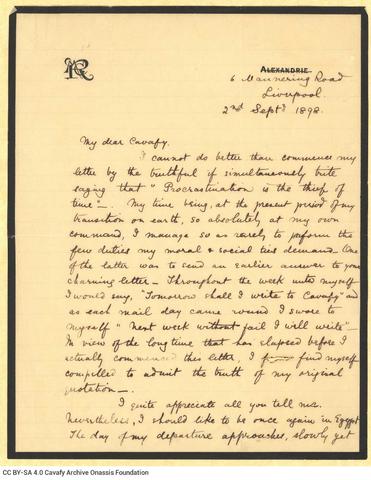 R
ALEXANDRIE
6 Mannering Road
Liverpool.
2nd Septr 1898.
My dear Cavafy.
I cannot do better than commence my
letter by the truthful if simultaneously trite
saying that "Procrastination is the thief of
time"_. My time being, at the present period of my
transition on earth, so absolutely at my own
command, I manage so as rarely to perform the
few duties my moral & social ties demand_ One
of the latter was to send an earlier answer to your
charming letter_ Throughout the week unto myself
I would say, "Tomorrow shall I write to Cavafy" and
as each mail day came round I swore to
myself "Next week without fail I will write"_
In view of the long time that has elapsed before I
actually commenced this letter, I find myself
compelled to admit the truth of my original
quotation_.
I quite appreciate all you tell me.
Nevertheless, I should like to be once again in Egypt
The day of my departure approaches, slowly yet
CC BY-SA 4.0 Cavafy Archive Onassis Foundation